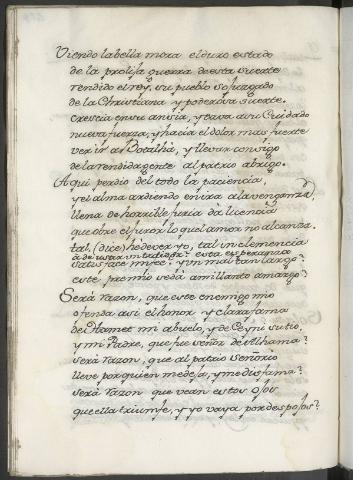 Viendo la bella mora el duro estado
de la prolija guerra de esta suerte
rendido el rey, su pueblo sojuzgado
de la Christiana y poderosa suerte.
crescia en su ansia, y cava su Cuidado
nueva fuerza, y hacia el dolor mas fuerte
ver ir a Botalhia, y llevar consigo
de la rendida gente al patrio abrigo.
Aqui perdio del todo la paciencia,
y el alma ardiendo en ira a la venganza,
llena de horrible furia da licencia
que obre el furor lo que el amor no alcanza.
tal, (dice) hè de ver yo, tal inclemencia
à de usar un traidor? esta esperanza
satisface mi fee? y un mal tan largo?
este premio vedà a mi llanto amargo?
Serà razon, que este enemigo mio
ofenda asi el honor y clara fama
de Hamet mi abuelo, y de Ceyni su tio,
y mi Padre, que fue señor de Alhama?
serà razon, que al patrio señorio
lleve por quien me deja, y me disfama?
serà razon que vean estos ojos
que ella triumfe, y yo vaya por despojos?